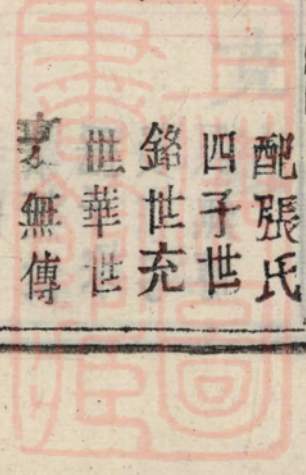 配張氏
四子世
銘世充
世華世
無傳